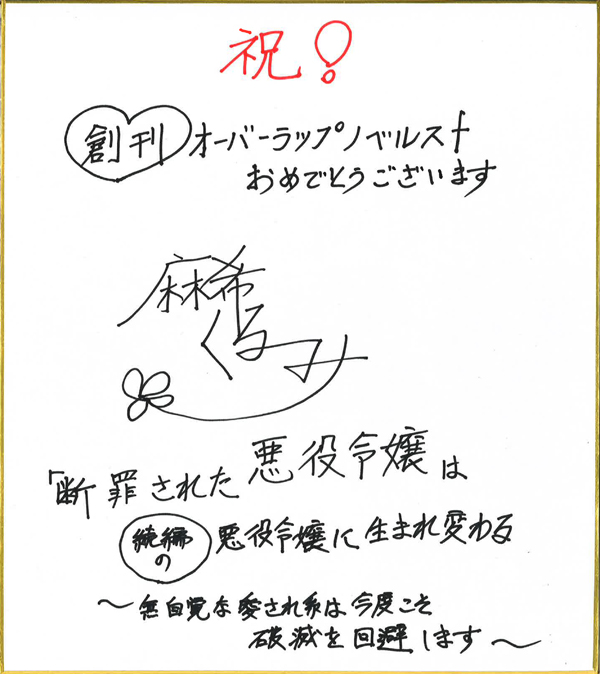 祝!
創刊 オーバーラップノベルスf
おめでとうございます
麻希
くるみ
「断罪された悪役令嬢は
続編の 悪役令嬢に生まれ変わる
〜無自覚な愛され系は今度こそ
破滅を回避します〜